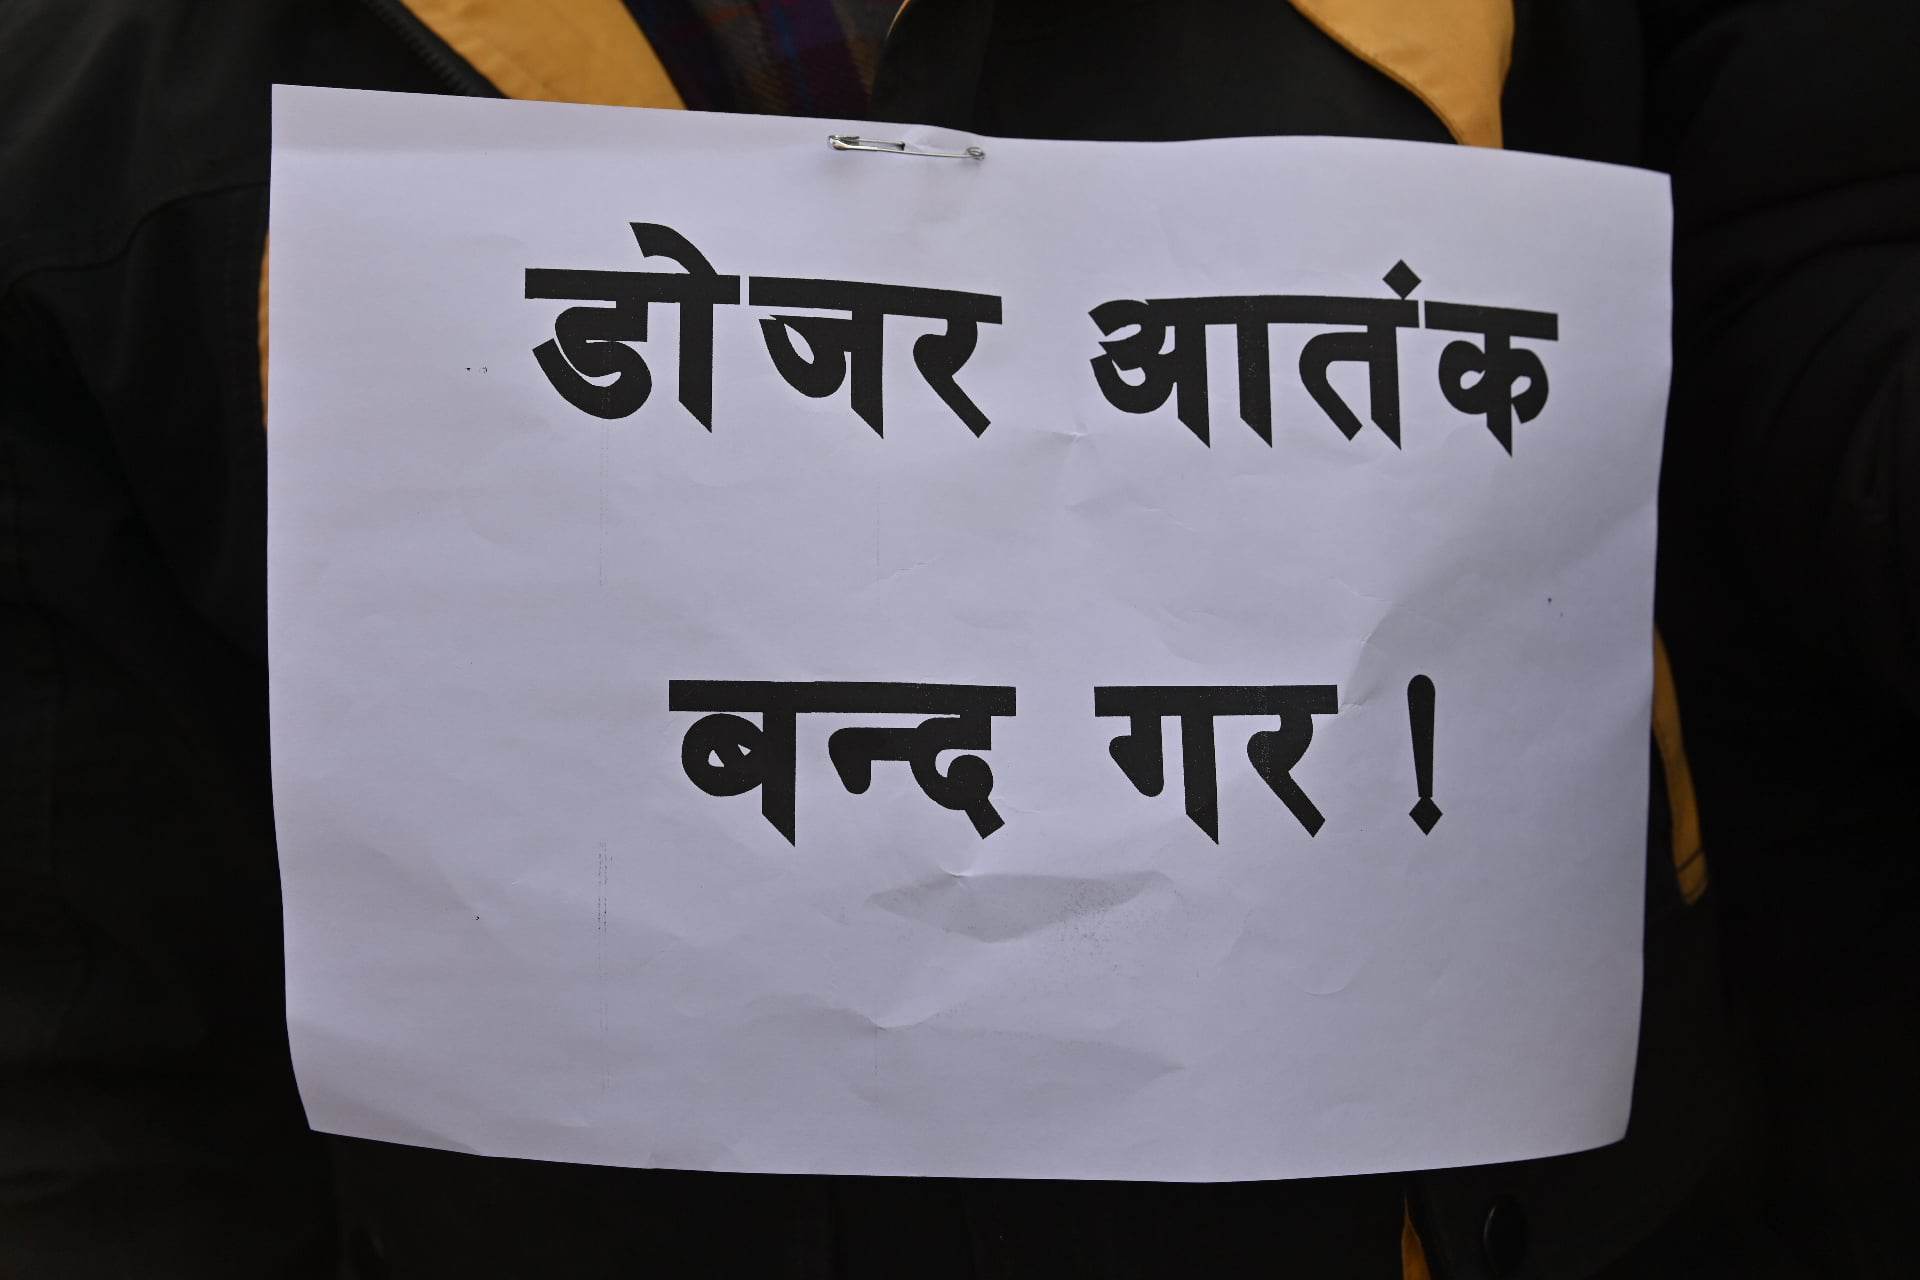 डोजर आतंक
बन्द गर !